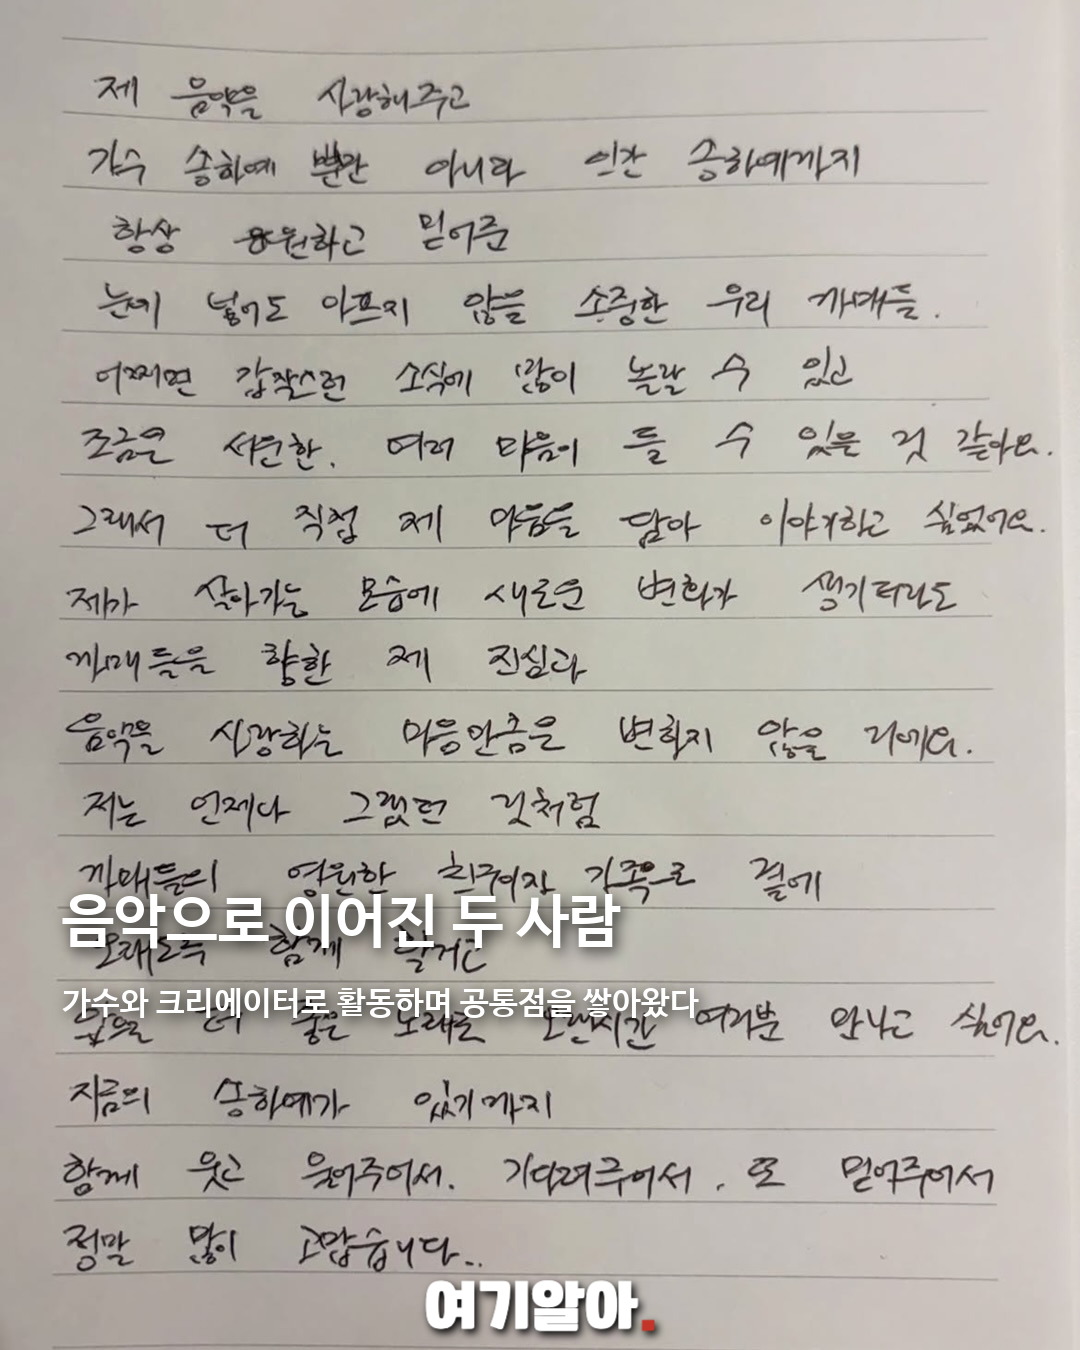 제 음악을 사랑해주고
가수 송하예 뿐만 아니라 인간 송하예까지
항상 응원하고 믿어준
눈에 넣어도 아프지 않을 소중한 우리 까매들.
어쩌면 갑작스런 소식에 많이 놀랄 수 있고
조금은 서운한. 여러 마음이 들 수 있을 것 같아요.
그래서 더 직접 제 마음을 담아 이야기하고 싶었어요.
제가 살아가는 모습에 새로운 변화가 생기더라도
까매들을 향한 제 진심과
음악을 사랑하는 마음만큼은 변하지 않을 거에요.
저는 언제나 그랬던 것처럼
까매들의 영원한 친구이자 가족으로 곁에
음악으로 이어진 두 사람
오래도록 함께 할거고
가수와 크리에이터로 활동하며 공통점을 쌓아왔다
앞으로 더 좋은 노래로 오랜시간 여러분 만나고 싶어요.
지금의 송하예가 있기까지
함께 웃고 울어주어서. 기다려주어서. 또 믿어주어서
정말 많이 고맙습니다..
여기알아.